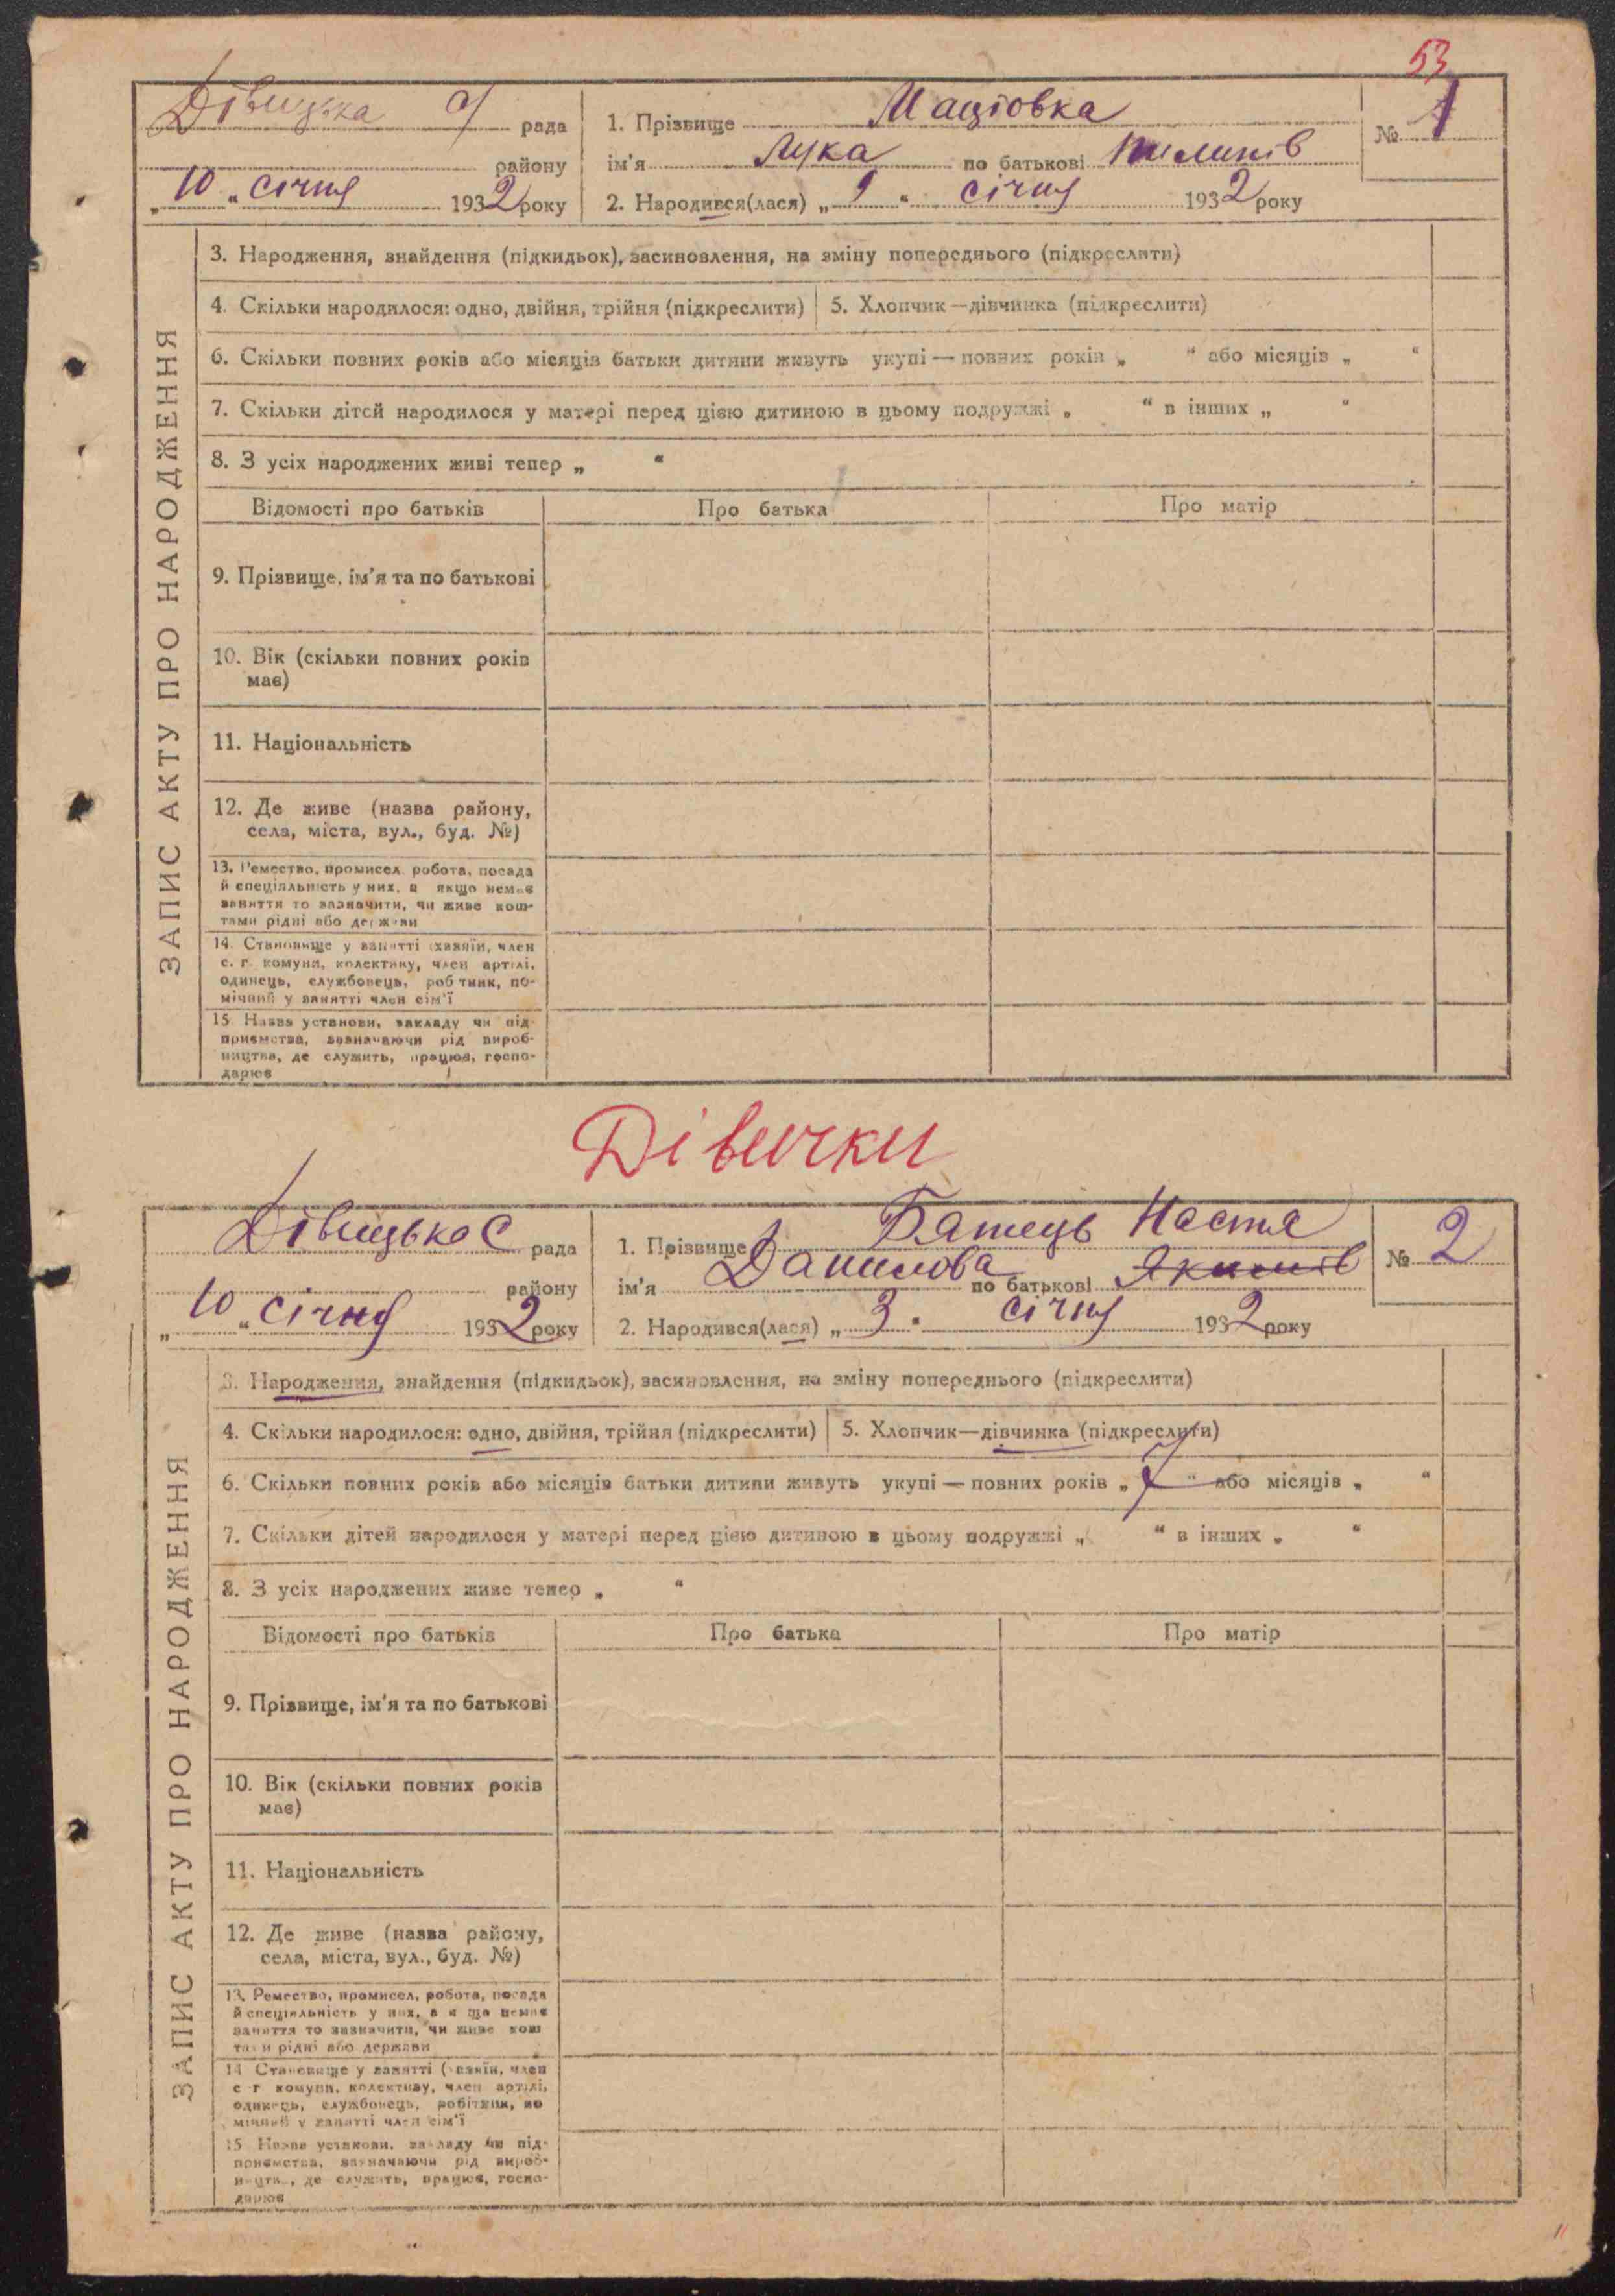 53
Дівицька рада
району
„ 10 “ січня 1932 року
1. Прізвище Мацьовка
ім'я Лука по батькові
2. Народився(лася) „ 9 “ січня 1932 року
№ 1
ЗАПИС АКТУ ПРО НАРОДЖЕННЯ
3. Народження, знайдення (підкидьок), засиновлення, на зміну попереднього (підкреслити)
4. Скільки народилося: одно, двійня, трійня (підкреслити)
5. Хлопчик—дівчинка (підкреслити)
6. Скільки повних років або місяців батьки дитини живуть укупі — повних років „ “ або місяців „ “
7. Скільки дітей народилося у матері перед цією дитиною в цьому подружжі „ “ в інших „ “
8. З усіх народжених живі тепер „ “
Відомості про батьків
Про батька
Про матір
9. Прізвище, ім'я та по батькові
10. Вік (скільки повних років
має)
11. Національність
12. Де живе (назва району,
села, міста, вул., буд. №)
13. Ремество, промисел, робота, посада
й спеціяльність у них, а якщо немає
заняття то зазначити, чи живе кош-
тами рідні або держави
14. Становище у занятті (хазяїн, член
с. г. комуни, колективу, член артілі,
одинець, службовець, робітник, по-
мічний у занятті член сім'ї
15. Назва установи, закладу чи під-
приємства, зазначаючи рід вироб-
ництва, де служить, працює, госпо-
дарює
Дівички
Дівицька С рада
району
„ 10 “ січня 1932 року
1. Прізвище Батець Настя
ім'я Данилова по батькові Якимів
2. Народився(лася) „ 3 “ січня 1932 року
№ 2
ЗАПИС АКТУ ПРО НАРОДЖЕННЯ
3. Народження, знайдення (підкидьок), засиновлення, на зміну попереднього (підкреслити)
4. Скільки народилося: одно, двійня, трійня (підкреслити)
5. Хлопчик—дівчинка (підкреслити)
6. Скільки повних років або місяців батьки дитини живуть укупі — повних років „ 7 “ або місяців „ “
7. Скільки дітей народилося у матері перед цією дитиною в цьому подружжі „ “ в інших „ “
8. З усіх народжених живе тепер „ “
Відомості про батьків
Про батька
Про матір
9. Прізвище, ім'я та по батькові
10. Вік (скільки повних років
має)
11. Національність
12. Де живе (назва району,
села, міста, вул., буд. №)
13. Ремество, промисел, робота, посада
й спеціяльність у них, а якщо немає
заняття то зазначити, чи живе кош
тами рідні або держави
14. Становище у занятті (хазяїн, член
с г комуни, колективу, член артілі,
одинець, службовець, робітник, по
мічний у занятті член сім'ї
15. Назва установи, закладу чи під-
приємства, зазначаючи рід вироб-
ництва, де служить, працює, госпо-
дарює